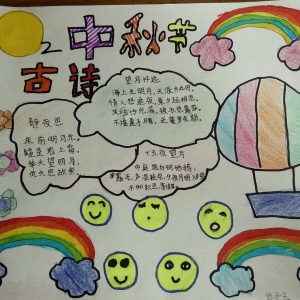 中秋节
古诗
望月怀远
海上生明月,天涯共此时。
情人怨遥夜,竟夕起相思。
灭烛怜光满,披衣觉露滋。
不堪盈手赠,还寝梦佳期。
静夜思
床前明月光,
疑是地上霜。
举头望明月,
低头思故乡。
十五夜望月
中庭地白树栖鸦,
冷露无声湿桂花。今夜月明人尽望,
不知秋思落谁家